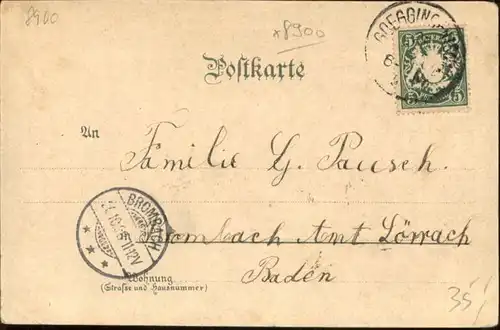 8900
x8900
GOEGGINGEN
Postkarte
5 5
An
Familie G. Pausch.
BROMBACH
11-12V
Brombach Amt Lörrach
Baden
Wohnung
(Straße und Hausnummer)
35,